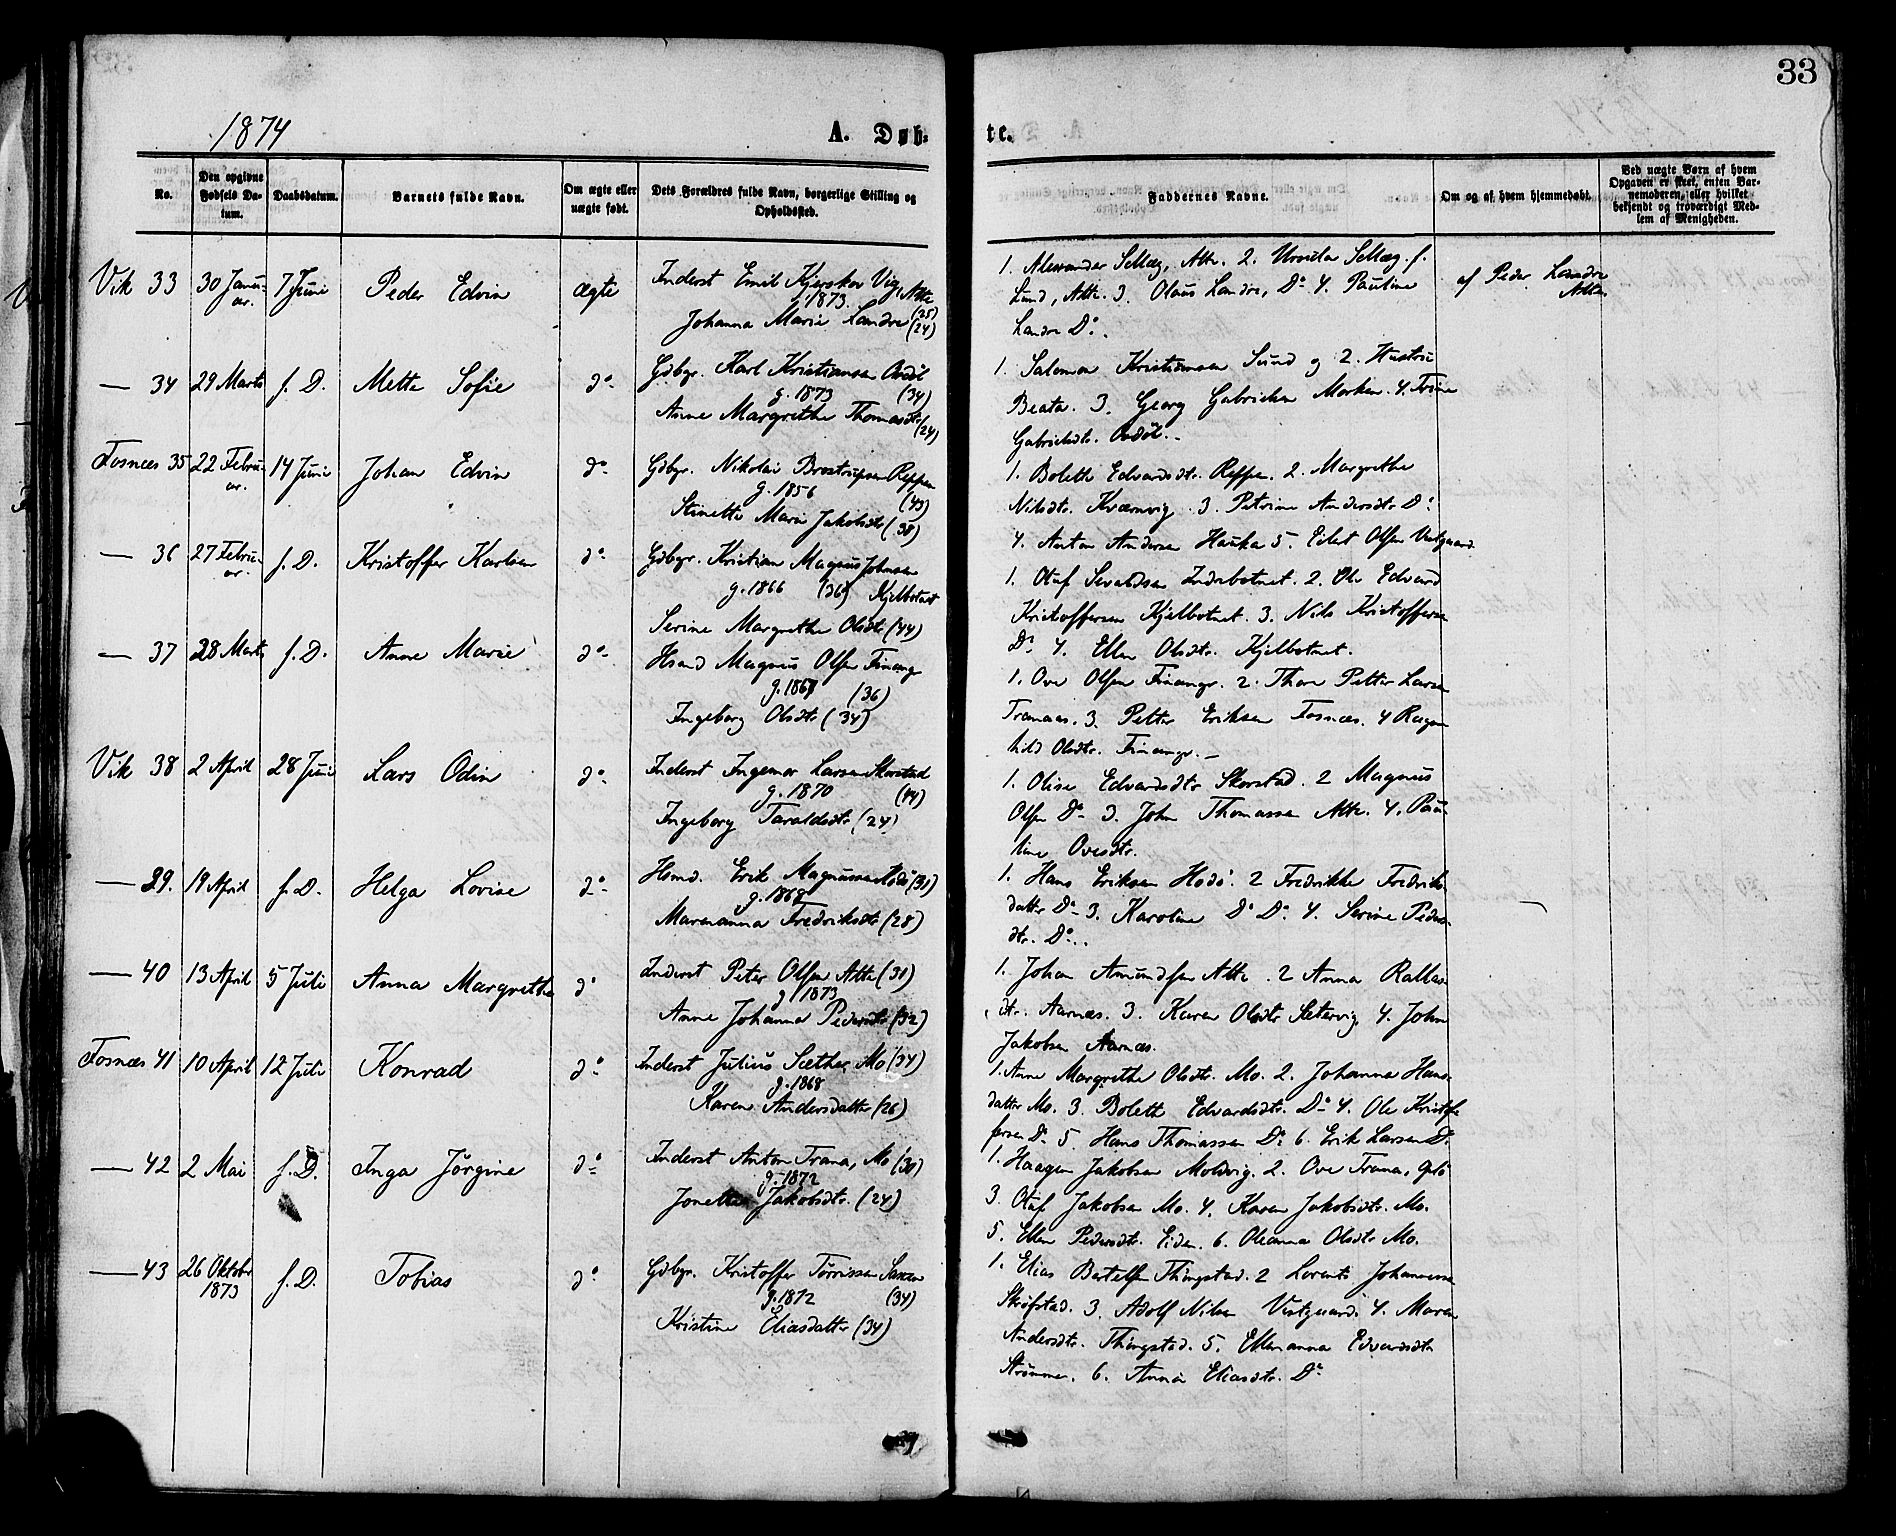 33
1874
A. Døb-
te.
No.
Den opgivne Fødsels Da-tum.
Daabsdatum.
Barnets fulde Navn.
Om ægte eller uægte født.
Dets Forældres fulde Navn, borgerlige Stilling og Opholdssted.
Faddernes Navne.
Om og af hvem hjemmedøbt.
Ved uægte Børn af hvem Opgaven er skeet, enten Bar-nemoderen, eller hvilket bekjendt og troværdigt Med-lem af Menigheden.
Vik 33 30 Janu-ar. 7 Juni Peder Edvin ægte Inderst Emil Kjerskov Vig, Atte
g. 1873. (25)
Johanna Marie Landre (24)
1. Alexander Selläg, Atte. 2. Ursula Selläg f.
Lund, Atte. 3. Olaus Landre, Do 4. Pauline
Landre Do.
af Peder Landre
Atte
— 34 29 Marts s. D. Mette Sofie do Gdbgr. Karl Kristiansen Ovdöl
g. 1873 (34)
Anne Margrethe Thomasdtr (24)
1. Salomon Kristiansen Sund og 2. Hustru
Beata. 3. Georg Gabrielsen Morken. 4. Trine
Gabrielsdtr. Ovdöl.
Fosnæs 35 22 Febru-ar. 14 Juni Johan Edvin do Gdbgr. Nikolai Brostrupsen Reppen
g. 1856 (43)
Stinette Marie Jakobsdtr (38)
1. Bolette Edvardsdtr. Reppen. 2. Margrethe
Nilsdtr. Kværnvig. 3 Petrine Andersdtr Do
4. Anton Andersen Hauka 5. Eilert Olsen Vestgaard
— 36 27 Febru-ar. s. D. Kristoffer Karlsen do Gdbgr. Kristian Magnus Johnsen
g. 1866 (36) Kjelbotnet
Serine Margrethe Olsdtr (44)
1. Olaf Sivaldsen Indrebotnet. 2. Ole Edvard
Kristoffersen Kjelbotnet. 3. Nils Kristoffersen
Do 4. Ellen Olsdtr. Kjelbotnet.
— 37 28 Marts s. D. Anne Marie do Hsmd Magnus Olsen Finangr
(36)
Ingeborg Olsdtr (34)
1. Ove Olsen Finangr. 2. Thore Petter Larsen
Tranaas. 3. Petter Eriksen Fosnæs. 4 Ragn
hild Olsdtr. Finangr.
Vik 38 2 April 28 Juni Lars Odin do Inderst Ingemar Larsen Skorstad
g. 1870 (44)
Ingeborg Taraldsdtr (24)
1. Olise Edvardsdtr Skorstad. 2 Magnus
Olsen Do 3. John Thomassen Atte. 4. Pau
line Ovesdtr.
— 29. 19 April s. D. Helga Lovise do Hsmd. Erik Magnussen Hodö (31)
Marenanna Fredriksdtr (28)
1. Hans Eriksen Hodö. 2 Fredrikke Fredriks
datter Do 3. Karoline Do Do 4. Serine Peders
dtr. Do.
— 40 13 April 5 Juli Anna Margrethe do Inderst Peter Olsen Atte (31)
g 1873
Anne Johanna Pedersdtr (32)
1. Johan Amundsen Atte. 2 Anna Rallas
dtr. Aarnæs. 3. Karen Olsdtr Setervig 4. John
Jakobsen Aarnæs.
Fosnæs 41 10 April 12 Juli Konrad do Inderst Julius Sæther, Mo (34)
g. 1868
Karen Andersdatter (26)
1. Anne Margrethe Olsdtr. Mo. 2. Johanna Hans-
datter Mo. 3. Bolette Edvardsdtr. Do 4. Ole Kristof
fersen Do 5 Hans Thomassen Do 6. Erik Larsen Do
— 42 2 Mai s. D. Inga Jörgine do Inderst Anton Trana, Mo (30)
g. 1872
Jonetta Jakobsdtr. (24)
1. Haagen Jakobsen Moldvig. 2. Ove Trana,
3. Olaf Jakobsen Mo. 4. Karen Jakobsdtr. Mo.
5. Ellen Pedersdtr. Eiden. 6. Oleanna Olsdtr Mo.
— 43 26 Oktobr 1873 s. D. Tobias do Gdbgr. Kristoffer Törrissen Saxen
g. 1872 (34)
Kristine Eliasdatter (34)
1. Elias Bertelsen Thingstad. 2 Lorents Johannessen
Skröfstad. 3. Adolf Nilsen Vestgaard. 4. Maren
Andersdtr. Thingstad. 5. Ellenanna Edvardsdtr
Strömmen. 6. Anna Eliasdtr. Do